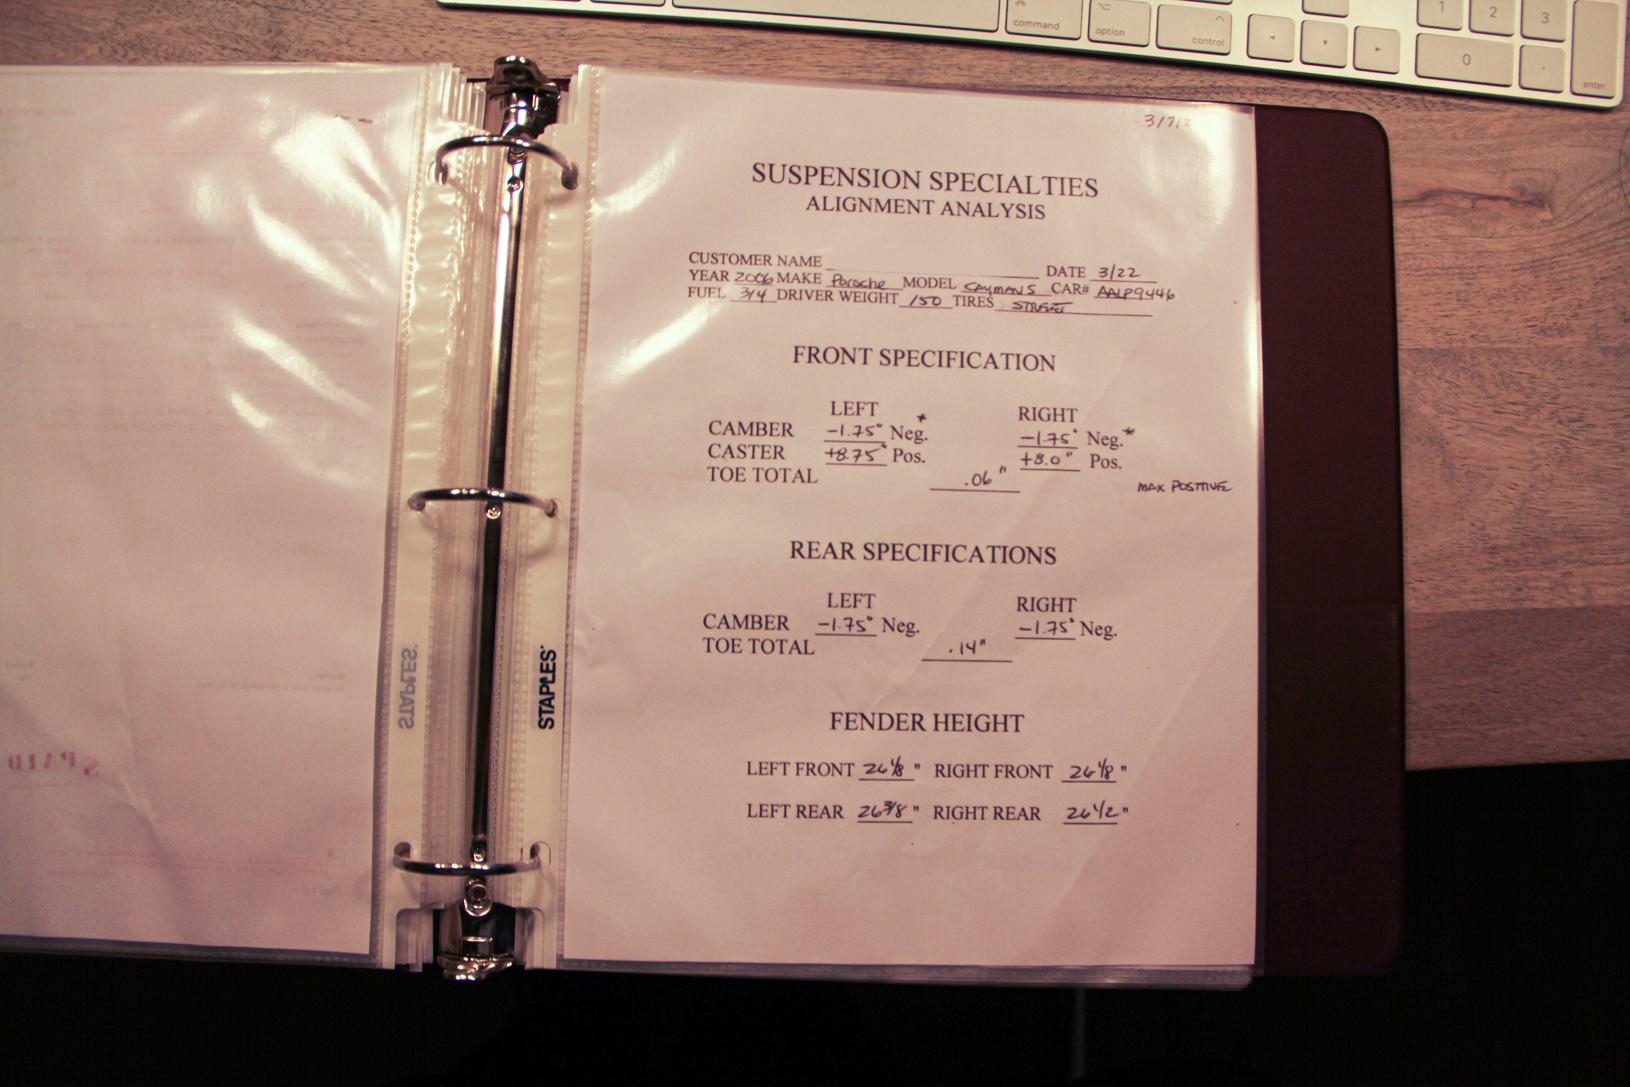 command
option
control
1
2
3
0
.
enter
SUSPENSION SPECIALTIES
ALIGNMENT ANALYSIS
CUSTOMER NAME DATE 3/22
YEAR 2006 MAKE Porsche MODEL CAYMAN S CAR# AALP9446
FUEL 3/4 DRIVER WEIGHT 150 TIRES STREET
FRONT SPECIFICATION
LEFT RIGHT
CAMBER -1.75° Neg.* -1.75° Neg.*
CASTER +8.75° Pos. +8.0" Pos.
TOE TOTAL .06" MAX POSITIVE
REAR SPECIFICATIONS
LEFT RIGHT
CAMBER -1.75° Neg. -1.75° Neg.
TOE TOTAL .14"
FENDER HEIGHT
LEFT FRONT 26 1/8 " RIGHT FRONT 26 1/8 "
LEFT REAR 26 3/8 " RIGHT REAR 26 1/2 "
STAPLES
STAPLES
PAID